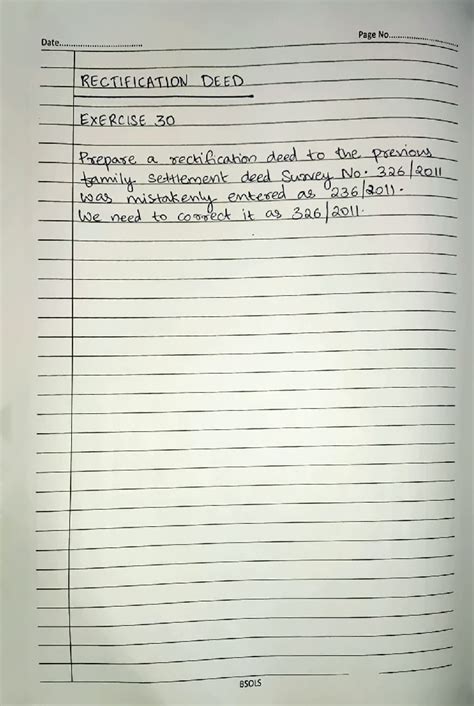 Date..............................
Page No.........................
RECTIFICATION DEED
EXERCISE 30
Prepare a rectification deed to the previous
family settlement deed Survey No. 326/2011
was mistakenly entered as 236/2011.
We need to correct it as 326/2011.
BSOLS